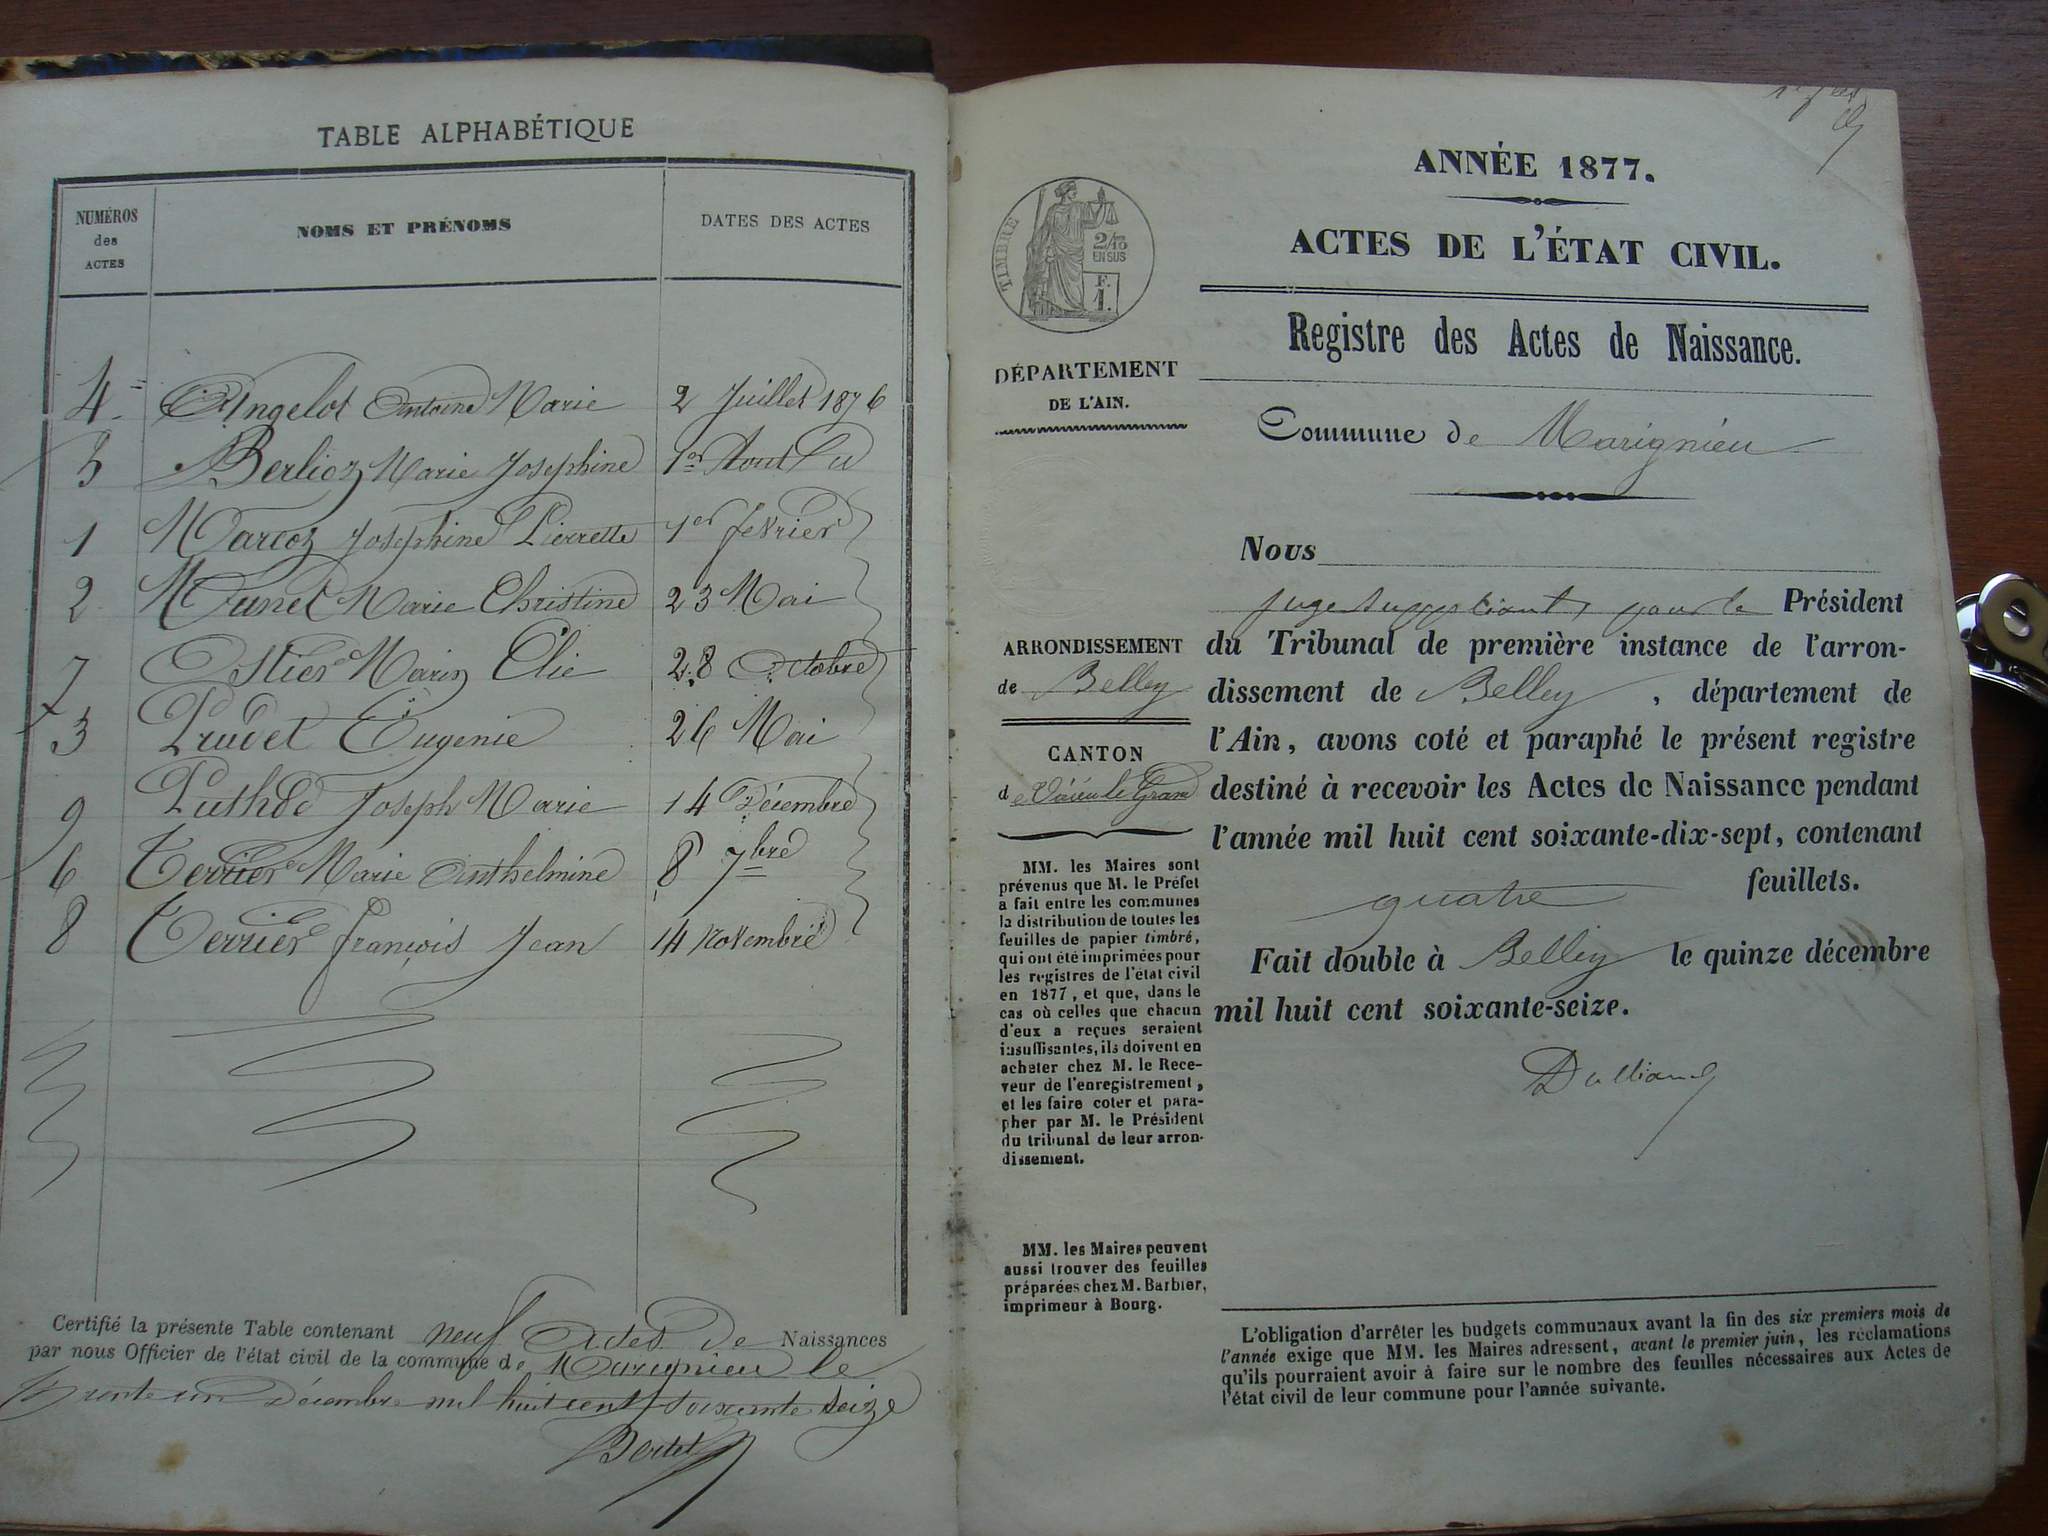 TABLE ALPHABÉTIQUE
NUMÉROS des ACTES
NOMS ET PRÉNOMS
DATES DES ACTES
4 Angelot Antoine Marie 2 Juillet 1876
5 Berlioz Marie Josephine 1er Aout
1 Marcoz Josephine Pierrette 1er fevrier
2 Munet Marie Christine 23 Mai
7 Ostier Marin Elie 28 Octobre
3 Prudet Eugenie 26 Mai
9 Puthod Joseph Marie 14 Décembre
6 Terrier Marie Anthelmine 8 7bre
8 Terrier françois Jean 14 novembre
Certifié la présente Table contenant neuf Actes de Naissances
par nous Officier de l'état civil de la commune de Marignieu le
Trente un Décembre mil huit cent soixante seize
Bertet
ANNÉE 1877.
ACTES DE L'ÉTAT CIVIL.
Registre des Actes de Naissance.
Commune de Marignieu
TIMBRE
2/10
EN SUS
F.
1.
DÉPARTEMENT
DE L'AIN.
ARRONDISSEMENT
de Belley
CANTON
de
MM. les Maires sont
prévenus que M. le Préfet
a fait entre les communes
la distribution de toutes les
feuilles de papier timbré,
qui ont été imprimées pour
les registres de l'état civil
en 1877, et que, dans le
cas où celles que chacun
d'eux a reçues seraient
insuffisantes, ils doivent en
acheter chez M. le Rece-
veur de l'enregistrement,
et les faire coter et para-
pher par M. le Président
du tribunal de leur arron-
dissement.
MM. les Maires peuvent
aussi trouver des feuilles
préparées chez M. Barbier,
imprimeur à Bourg.
Nous
juge suppléant, pour le Président
du Tribunal de première instance de l'arron-
dissement de Belley, département de
l'Ain, avons coté et paraphé le présent registre
destiné à recevoir les Actes de Naissance pendant
l'année mil huit cent soixante-dix-sept, contenant
quatre feuillets.
Fait double à Belley le quinze décembre
mil huit cent soixante-seize.
L'obligation d'arrêter les budgets communaux avant la fin des six premiers mois de
l'année exige que MM. les Maires adressent, avant le premier juin, les réclamations
qu'ils pourraient avoir à faire sur le nombre des feuilles nécessaires aux Actes de
l'état civil de leur commune pour l'année suivante.